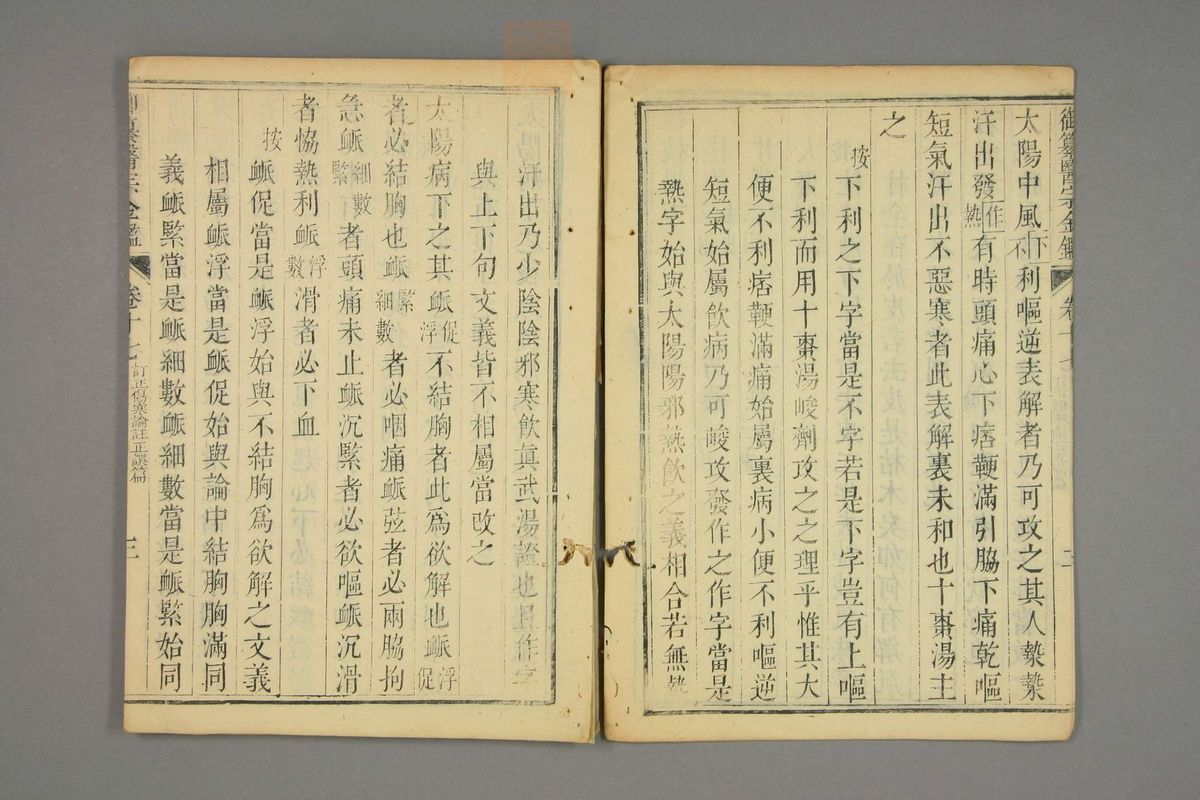 御纂醫宗金鑑 卷十七
太陽中風下不利嘔逆表解者乃可攻之其人漐漐
汗出發作熱有時頭痛心下痞鞕滿引脇下痛乾嘔
短氣汗出不惡寒者此表解裏未和也十棗湯主
之
按下利之下字當是不字若是下字豈有上嘔
下利而用十棗湯峻劑攻之之理乎惟其大
便不利痞鞕滿痛始屬裏病小便不利嘔逆
短氣始屬飲病乃可峻攻發作之作字當是
熱字始與太陽陽邪熱飲之義相合若無熱
汗出乃少陰陰邪寒飲眞武湯證也且作字
與上下句文義皆不相屬當改之
太陽病下之其脈促浮不結胸者此爲欲解也脈浮促
者必結胸也脈緊細數者必咽痛脈弦者必兩脇拘
急脈細數緊者頭痛未止脈沉緊者必欲嘔脈沉滑
者恊熱利脈浮數滑者必下血
按脈促當是脈浮始與不結胸爲欲解之文義
相屬脈浮當是脈促始與論中結胸胸滿同
義脈緊當是脈細數脈細數當是脈緊始同
御纂醫宗金鑑 卷十七 訂正傷寒論註正誤篇 三